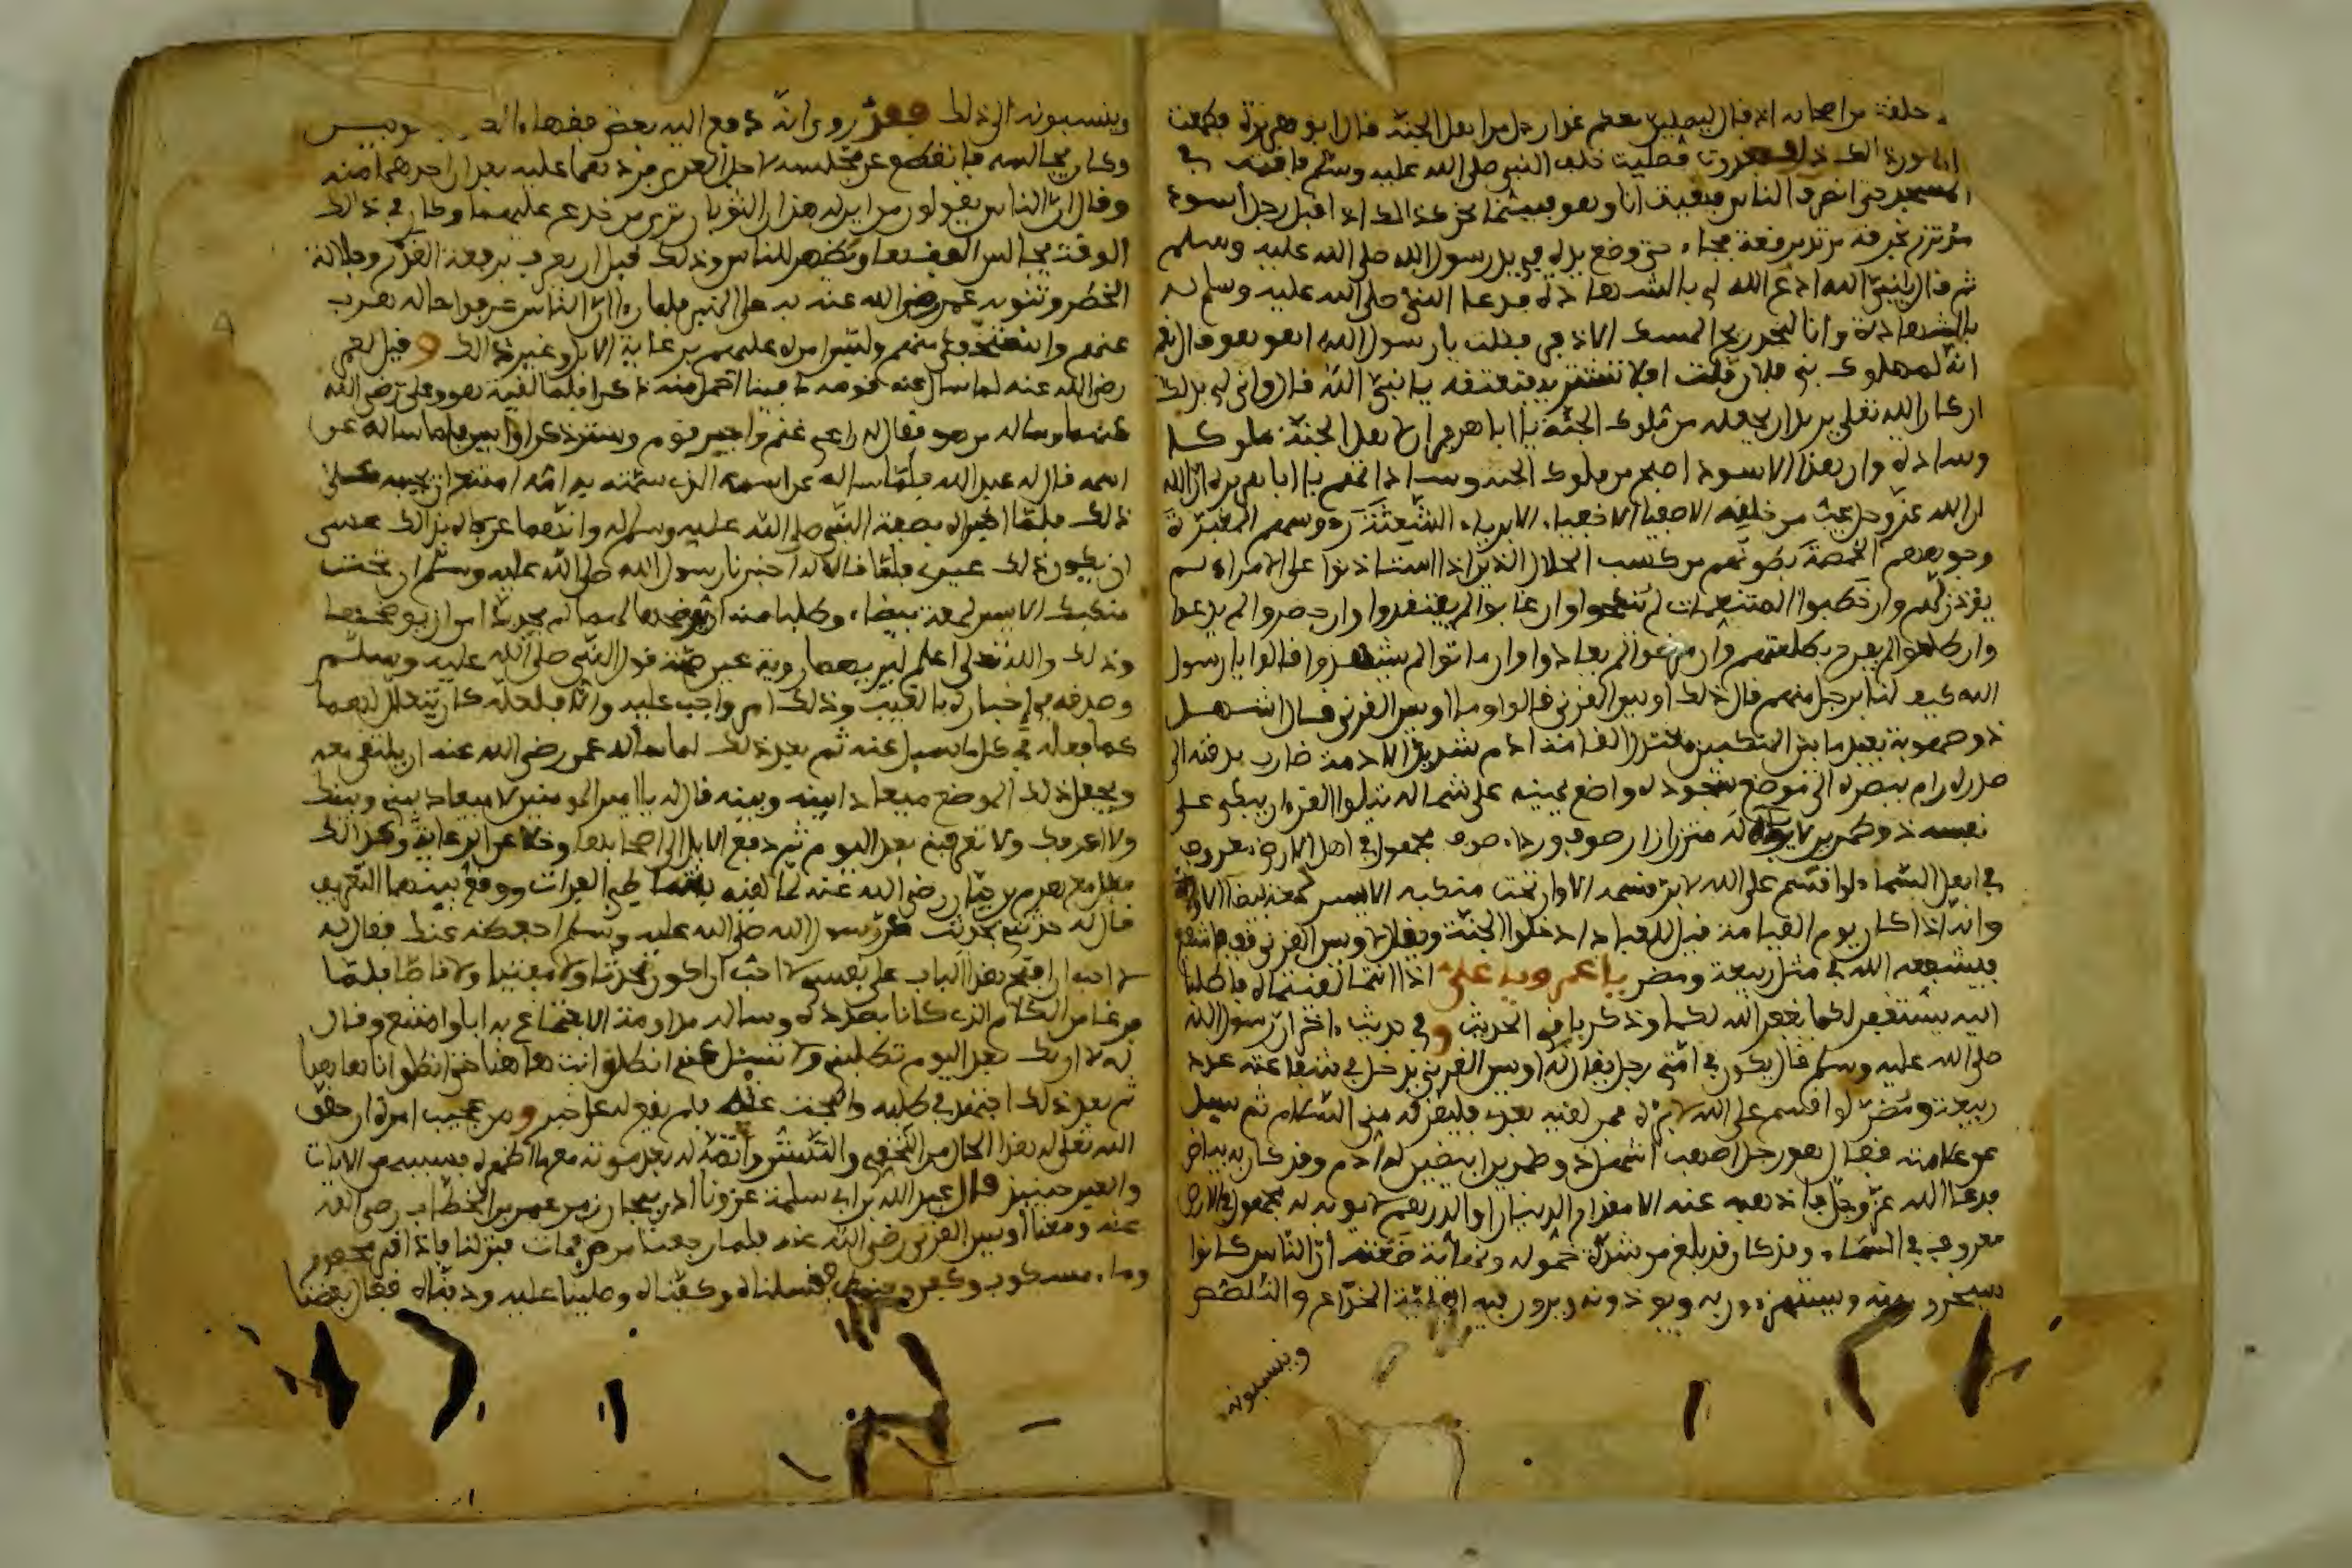 حلقة من اصحابه اذ قال ليصلين معكم غدا رجل من اهل الجنة قال ابو هريرة فطمعت
ان اكون ذلك فغدوت فصليت خلف النبي صلى الله عليه وسلم فاقمت في
المسجد حتى انصرف الناس وبقيت انا وهو فبينما نحن كذالك اذ اقبل رجل أسود
متزر بخرقة مرتد برقعة فجاء حتى وضع يده في يد رسول الله صلى الله عليه وسلم
ثم قال يا نبي الله ادع الله لي بالشهادة فدعا النبي صلى الله عليه وسلم له
بالشهادة وانا لنجد ريح المسك الاذفر فقلت يا رسول الله اهو هو قال نعم
انه لمملوك بني فلان قلت افلا تشتريه فتعتقه يا نبي الله قال وانى لي بذلك
ان كان الله تعلى يريد ان يجعله من ملوك الجنة يا ابا هريرة ان لاهل الجنة ملوكا
وسادة وان هذا الاسود اصبح من ملوك الجنة وساداتهم يا ابا هريرة ان الله
ان الله عز وجل يحب من خلقه الاصفياء الاخفياء الابرياء الشعثة رءوسهم المغبرة
وجوههم الخمصة بطونهم من كسب الحلال الذين اذا استاذنوا على الامراء لم
يؤذن لهم وان خطبوا المتنعمات لم ينكحوا وان غابوا لم يفتقدوا وان حضروا لم يدعوا
وان طلعوا لم يفرح بطلعتهم وان مرضوا لم يعادوا وان ماتوا لم يشهدوا قالوا يا رسول
الله كيف لنا برجل منهم قال ذلك اويس القرني قالوا وما اويس القرني قال اشهل
ذو صهوبة بعيد ما بين المنكبين معتدل القامة ادم شديد الادمة ضارب بذقنه الى
صدره رام ببصره الى موضع سجوده واضع يمينه على شماله يتلوا القرءان يبكي على
نفسه ذو طمرين لا يؤبه له متزر ازار صوف ورداء صوف مجهول في اهل الارض معروف
في اهل السماء لو اقسم على الله لابر قسمه الا وان تحت منكبه الايسر لمعة بيضا الا
وانه اذا كان يوم القيامة قيل للعباد ادخلوا الجنة ويقال لاويس القرني قف فاشفع
فيشفعه الله في مثل ربيعة ومضر يا عمر ويا علي اذا انتما لقيتماه فاطلبا
اليه يستغفر لكما يغفر الله لكما وذكر باقي الحديث وفي حديث ءاخر ان رسول الله
صلى الله عليه وسلم قال يكون في امتي رجل يقال له اويس القرني يدخل في شفاعته عدد
ربيعة ومضر لو اقسم على الله لابره فمن لقيه بعدي فليقره مني السلام ثم سيل
عن علامته فقال هو رجل اصهب اشهل ذو طمرين ابيضين له ادم وقد كان به بياض
فدعا الله عز وجل فاذهبه عنه الا مقدار الدينار او الدرهم لا يؤبه له مجهول في الارض
معروف في السماء وقد كان قد بلغ من شدة خموله وخفائه ضعته ان الناس كانوا
يسخرون منه ويستهزءون به ويؤذونه ويرون فيه الخداع والتلصص
وينسبونه
وينسبونه الى ذلك فقد روى انه دفع اليه بعض فقهاء
وكان يجالسه فانقطع عن مجلسه لاجل العري فردهما عليه بعد ان اخذهما منه
وقال ان الناس يقولون من اين له هذان الثوبان ترى من خدع عليهما وكان في ذلك
الوقت يجالس الفقهاء ويظهر للناس وذلك قبل ان يعرف برفعة القدر وجلالة
الخطر وتنويه عمر رضي الله عنه به على المنبر فلما رءا ان الناس عرفوا حاله هرب
عنهم واستخفى منهم ولبس امره عليهم برعاية الابل وغير ذالك وقيل لعمر
رضي الله عنه لما سال عنه قومه ما فينا اخمل منه ذكرا فلما لقيه هو وعلي رضي الله
عنهما وساله من هو فقال له راعي غنم واجير قوم وستر ذكر اويس فلما ساله عن
اسمه قال له عبد الله فلما ساله عن اسمه الذي سمته به امه امتنع ان يجيبه
ذلك فلما اخبراه بصفة النبي صلى الله عليه وسلم له وانهما عرفاه بذالك عسى
ان يكون ذلك غيري فلما قالا له اخبرنا رسول الله صلى الله عليه وسلم ان تحت
منكبك الايسر لمعة بيضاء وطلبا منه ان يوضحها لهما لم يجد بدا من ان يوضحها
وذلك والله تعلى اعلم ليريهما رؤية عين صحة قول النبي صلى الله عليه وسلم
وصدقه في اخباره بالغيب وذلك امر واجب عليه والا فلعله كان يتعلل لهما
كما فعله في كل ما سيل عنه ثم بعد ذلك لما ساله عمر رضي الله عنه ان يلتقي معه
ويجعل ذلك الموضع ميعادا بينه وبينه قال له يا امير المومنين لا ميعاد بيني وبينك
ولا اعرفك ولا تعرفني بعد اليوم ثم دفع الابل الى اصحابها وخلا عن الرعاية وكذالك
فعل مع هرم بن حيان رضي الله عنه لما لقيه بشاطئ الفرات ووقع بينهما التعريف
قال له حدثني بحديث عن رسول الله صلى الله عليه وسلم احفظه عنك فقال له
لا احب ان افتح هذا الباب على نفسي لا احب ان اكون محدثا ولا مفتيا ولا قاصا فلما
فرغا من الكلام الذي كانا بصدده وساله مداومة الاجتماع به ابا وامتنع وقال
له لا اريك بعد اليوم تطلبني ولا تسئل عني انطلق انت هاهنا حتى انطلق انا هاهنا
ثم بعد ذلك اجتهد في طلبه والبحث عنه فلم يقع له على خبر ومن عجيب امره ان حقق
الله تعلى له هذا الحال من التخفي والتستر واتصاله بعد موته معما اظهره بسببه من الايات
والعبر حينيذ قال عبد الله بن ابي سلمة غزونا اذربيجان زمن عمر بن الخطاب رضي الله
عنه ومعنا اويس القرني رضي الله عنه فلما رجعنا مرض فمات فنزلنا فاذا قبر محفور
وماء مسكوب وكفن وحنوط فغسلناه وكفناه وصلينا عليه ودفناه فقال بعضنا